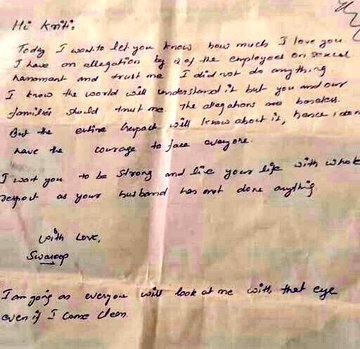 Hi Kriti,
Today I want to let you know how much I love you
I have an allegation by 2 of the employees on sexual
harassment and trust me I did not do anything
I know the world will understand it but you and our
families should trust me. The allegations are baseless
But the entire will know about it, hence I
have the courage to face everyone.
I want you to be strong and live your life with whole
respect as your husband has not done anything
With Love,
Swaroop
I am going as everyone will look at me with that eye
even if I come clean